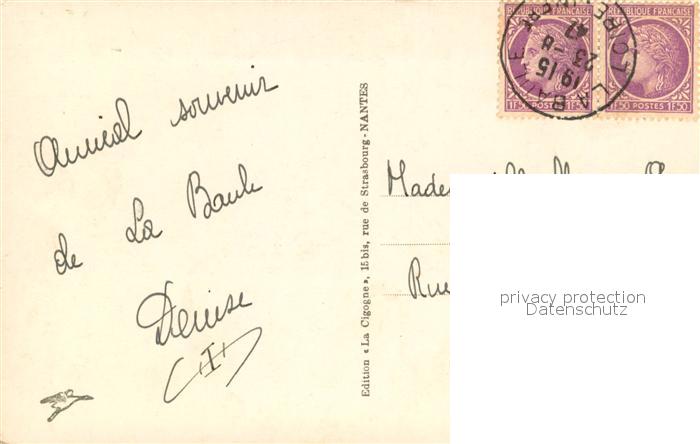 Amical souvenir
de La Baule
Denise
(I)
Edition « La Cigogne », 15bis, rue de Strasbourg - NANTES
REPUBLIQUE FRANÇAISE
REPUBLIQUE FRANÇAISE
1F50 POSTES 1F50
1F50 POSTES 1F50
LA BAULE
19 15
23 - 8
47
Rue
privacy protection
Datenschutz